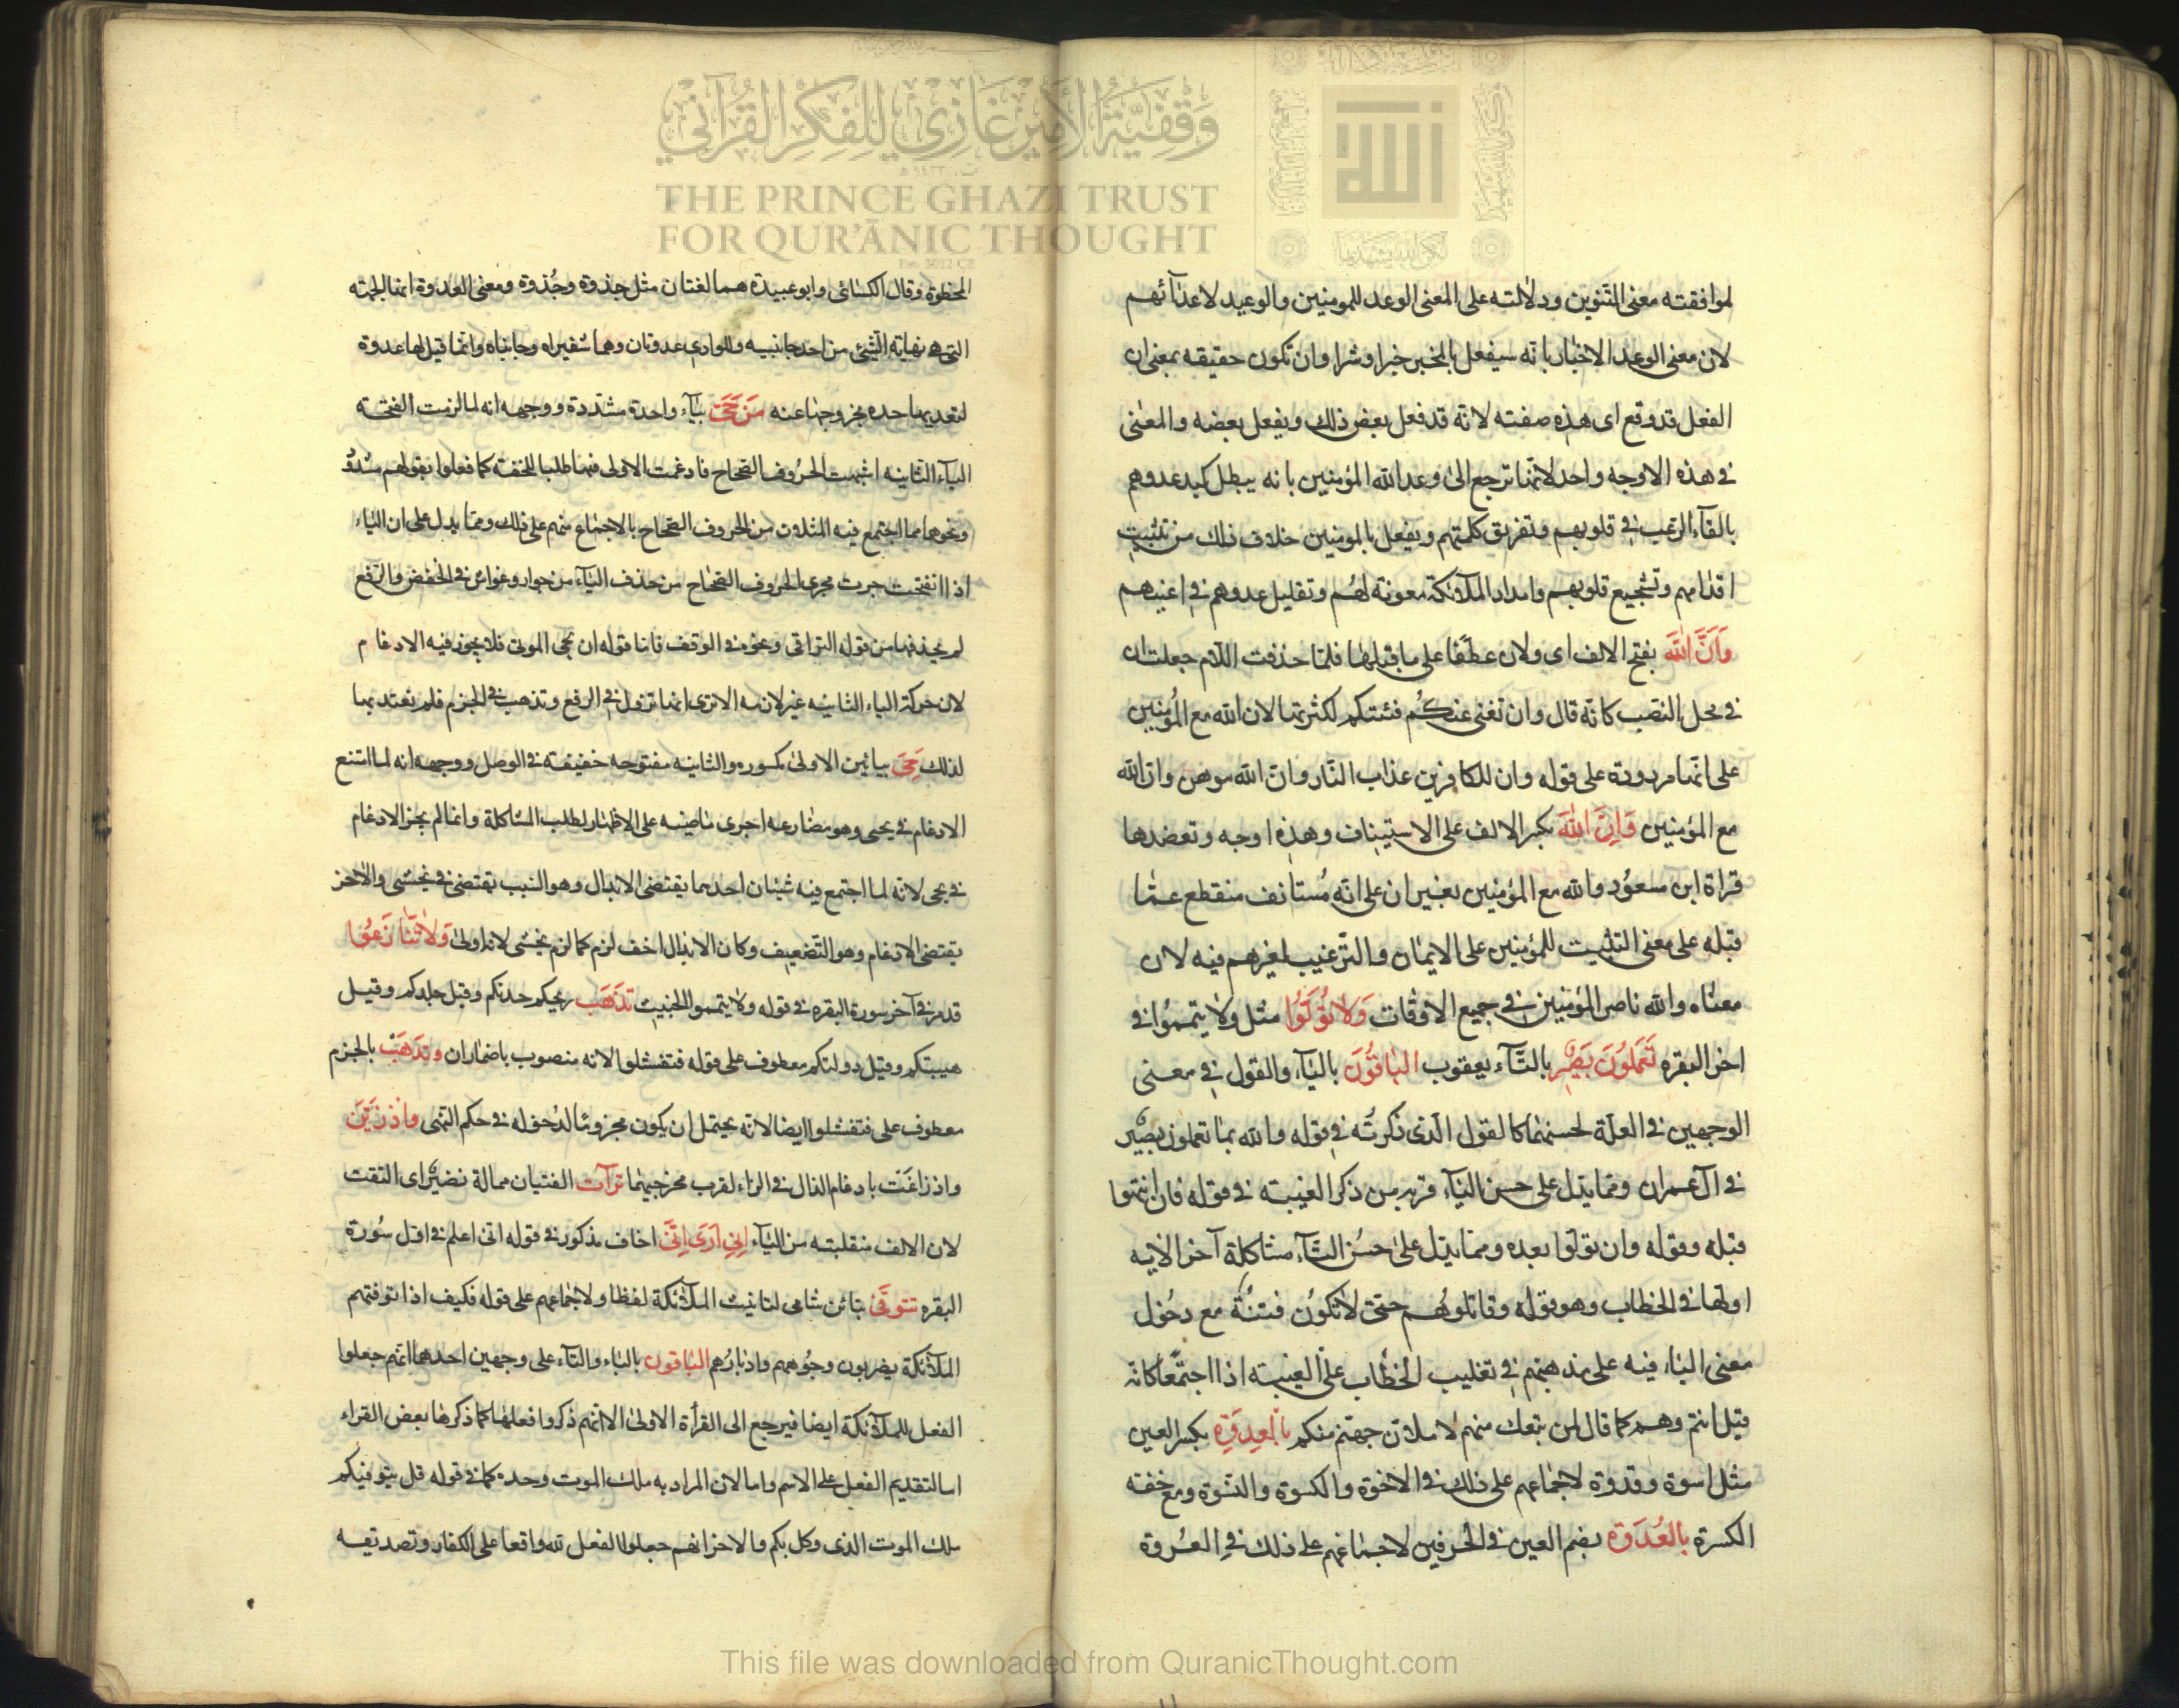 وقفية الأمير غازي للفكر القرآني
THE PRINCE GHAZI TRUST
FOR QUR'ĀNIC THOUGHT
لموافقته معنى التنوين ودلالته على المعنى الوعد للمومنين والوعيد لاعدآئهم
لان معنى الوعد الاخبار بانه سيفعل بالمخبر خيرا وشرا وان تكون حقيقه بمعنى ان
الفعل قد وقع اى هذه صفته لانه قد فعل بعض ذلك ويفعل بعضه والمعنى
فى هذه الاوجه واحد لانها ترجع الى وعد الله المؤمنين بانه يبطل كيد عدوهم
بالقآء الرعب فى قلوبهم وتفريق كلمتهم ويفعل بالمومنين خلاف ذلك من تثبيت
اقدامهم وتشجيع قلوبهم وامداد الملآئكة معونة لهم وتقليل عدوهم فى اعينهم
وَاَنَّ اللهَ بفتح الالف اى ولان عطفا على ما قبلها فلما حذفت اللام جعلت ان
فى محل النصب كانه قال وان تغنى عنكم فئتكم لكثرتها لان الله مع المؤمنين
على انها مردودة على قوله وان للكافرين عذاب النار وان الله موهن وان الله
مع المؤمنين وَاِنَّ اللهَ بكسر الالف على الاستيناف وهذه اوجه وتعضدها
قراة ابن مسعود والله مع المؤمنين بغير ان على انه مستانف منقطع عما
قبله على معنى التثبيت للمؤمنين على الايمان والترغيب لغيرهم فيه لان
معناه والله ناصر المؤمنين فى جميع الاوقات وَلَا تَوَلَّوْا مثل ولا يتمموا فى
اخر البقره تَعْمَلُونَ بَصِيرٌ بالتآء يعقوب الباقُونَ باليآء والقول فى معنى
الوجهين فى العلة لحسنهما كالقول الذى ذكرته فى قوله والله بما تعملون بصير
فى آل عمران ومما يدل على حسن اليآء قربه من ذكر الغيبة فى قوله فان انتهوا
قبله وقوله وان تولوا بعده ومما يدل على حسن التآء مشاكلة آخر الاية
اولها فى الخطاب وهو قوله وقاتلوهم حتى لا تكون فتنة مع دخول
معنى اليآء فيه على مذهبهم فى تغليب الخطاب على الغيبة اذا اجتمعا كانه
قيل انتم وهم كما قال لمن تبعك منهم لاملان جهنم منكم بِالْعِدْوَةِ بكسر العين
مثل اسوة وقدوة لاجماعهم على ذلك فى الاخوة والكسوة والنسوة ومع خفته
الكسرة بِالْعُدْوَةِ بضم العين فى الحرفين لاجماعهم على ذلك فى العروة
الخطوة وقال الكسائى وابو عبيدة هما لغتان مثل جذوة وجُذوة ومعنى العدوة انها الجهة
التى هى نهاية الشئ من احد جانبيه وللوادى عدوتان وهما شفيراه وجانباه وانما قيل لها عدوة
لتعديها حده بخروجها عنه مَنْ حَىَّ بيآء واحدة مشددة ووجهه انه لما لزمت الفتحة
اليآء الثانيه اشبهت الحروف الصحاح فادغمت الاولى فيها طلبا للخفة كما فعلوا بقولهم شدُّ
ونحوها مما اجتمع فيه المثلان من الحروف الصحاح بالاجماع منهم على ذلك ومما يدل على ان اليآء
اذا انفتحت جرت مجرى الحروف الصحاح من حذف اليآء من جوار وغواش فى الخفض والرفع
لم يحذفها من قوله التراقى ونحوه فى الوقف فاما قوله ان يحى الموتى فلا يجوز فيه الادغام
لان حركة الياء الثانيه غير لازمه الا ترى انها تزول فى الرفع وتذهب فى الجزم فلم يعتد بها
لذلك حَىِىَ بيائين الاولى مكسوره والثانيه مفتوحه خفيفة فى الوصل ووجهه انه لما امتنع
الادغام فى يحيى وهو مضارعه اجرى ماضيه على الاظهار لطلب المشاكلة وانما لم يجز الادغام
فى يحى لانه لما اجتمع فيه شيئان احدهما يقتضى الابدال وهو السبب يقتضى فى يخشى والاخر
يقتضى الادغام وهو التضعيف وكان الابدال اخف لزم كما لزم يخشى لانه اولى وَلَا تَنَازَعُوا
قد مر فى آخر سورة البقره فى قوله ولا يتمموا الخبيث تَذْهَبَ ريحكم حدتكم وقيل جلدكم وقيل
هيبتكم وقيل دولتكم معطوف على قوله فتفشلوا لانه منصوب باضمار ان وَتَذْهَبْ بالجزم
معطوف على فتفشلوا ايضا لانه يحتمل ان يكون مجزوما لدخوله فى حكم النهى وَاِذْ زَيَّنَ
واذ زاغت بادغام الذال فى الزاء لقرب مخرجيهما تَرَآءَت الفئتيان ممالة نصير اى التقت
لان الالف منقلبة من اليآء اِنِّى اَرَى اِنِّى اخاف مذكور فى قوله انى اعلم فى اول سورة
البقره تتوفى بتائن شامى لتانيث الملآئكة لفظا ولاجماعهم على قوله فكيف اذا توفتهم
الملآئكة يضربون وجوههم وادبارهم الباقون بالياء والتآء على وجهين احدهما انهم جعلوا
الفعل للملآئكة ايضا فيرجع الى القرأة الاولى الا انهم ذكروا فعلها كما ذكرها بعض القراء
اما لتقديم الفعل على الاسم واما لان المراد به ملك الموت وحده كما فى قوله قل يتوفيكم
ملك الموت الذى وكل بكم والاخر انهم جعلوا الفعل لله واقعا على الكفار وتصديقه
This file was downloaded from QuranicThought.com